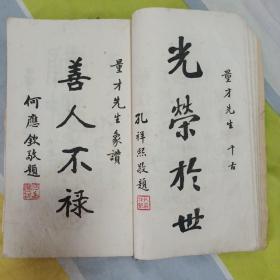 量才先生 千古
光榮於世
孔祥熙敬題
量才先生象讚
善人不禄
何應欽敬題